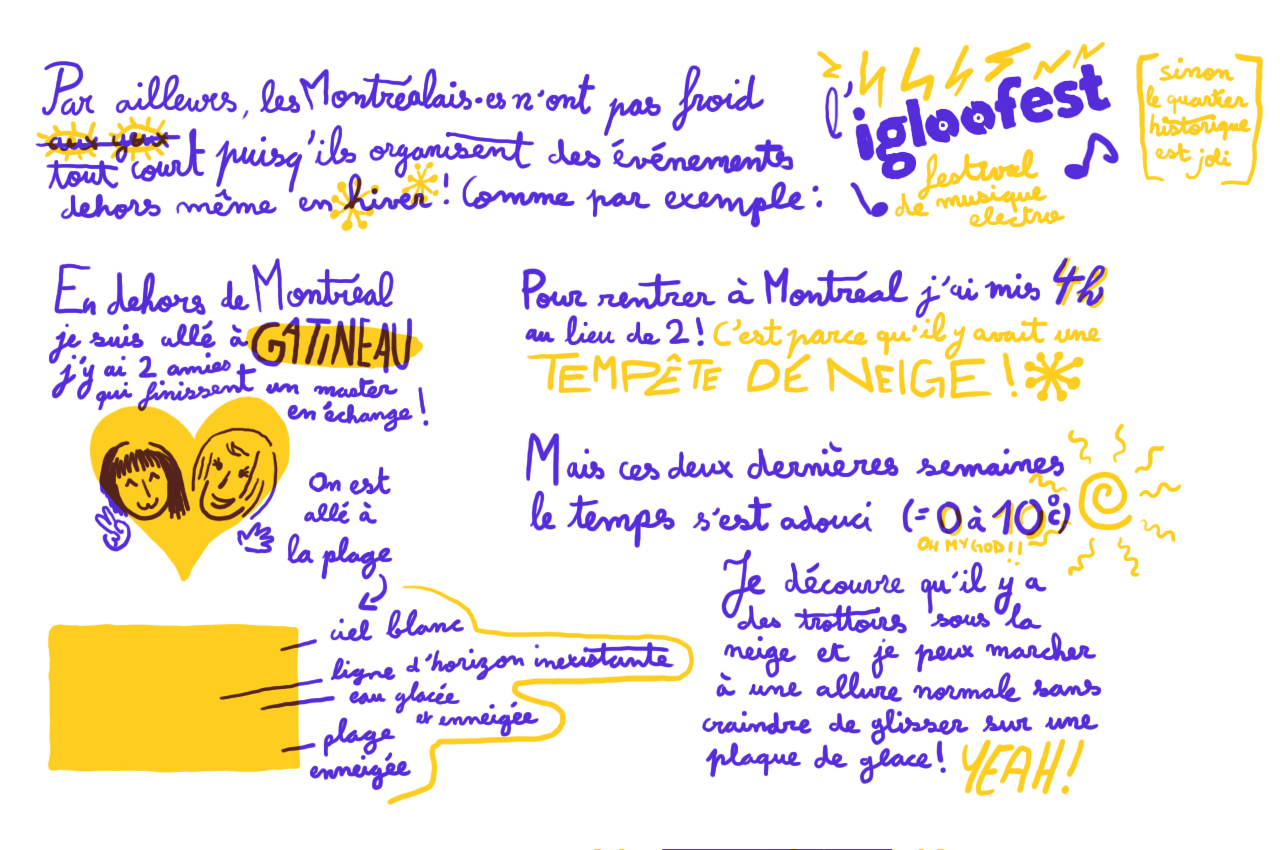 Par ailleurs, les Montréalais·es n'ont pas froid
aux yeux
tout court puisqu'ils organisent des événements
dehors même en hiver ! Comme par exemple :
l'igloofest
festival
de musique
electro
sinon
le quartier
historique
est joli
En dehors de Montréal
je suis allé à GATINEAU
j'y ai 2 amies
qui finissent un master
en échange !
On est
allé à
la plage
ciel blanc
ligne d'horizon inexistante
eau glacée
et enneigée
plage
enneigée
Pour rentrer à Montréal j'ai mis 4h
au lieu de 2 ! C'est parce qu'il y avait une
TEMPÊTE DE NEIGE !
Mais ces deux dernières semaines
le temps s'est adouci (= 0 à 10°c)
OH MY GOD !!
Je découvre qu'il y a
des trottoirs sous la
neige et je peux marcher
à une allure normale sans
craindre de glisser sur une
plaque de glace ! YEAH !